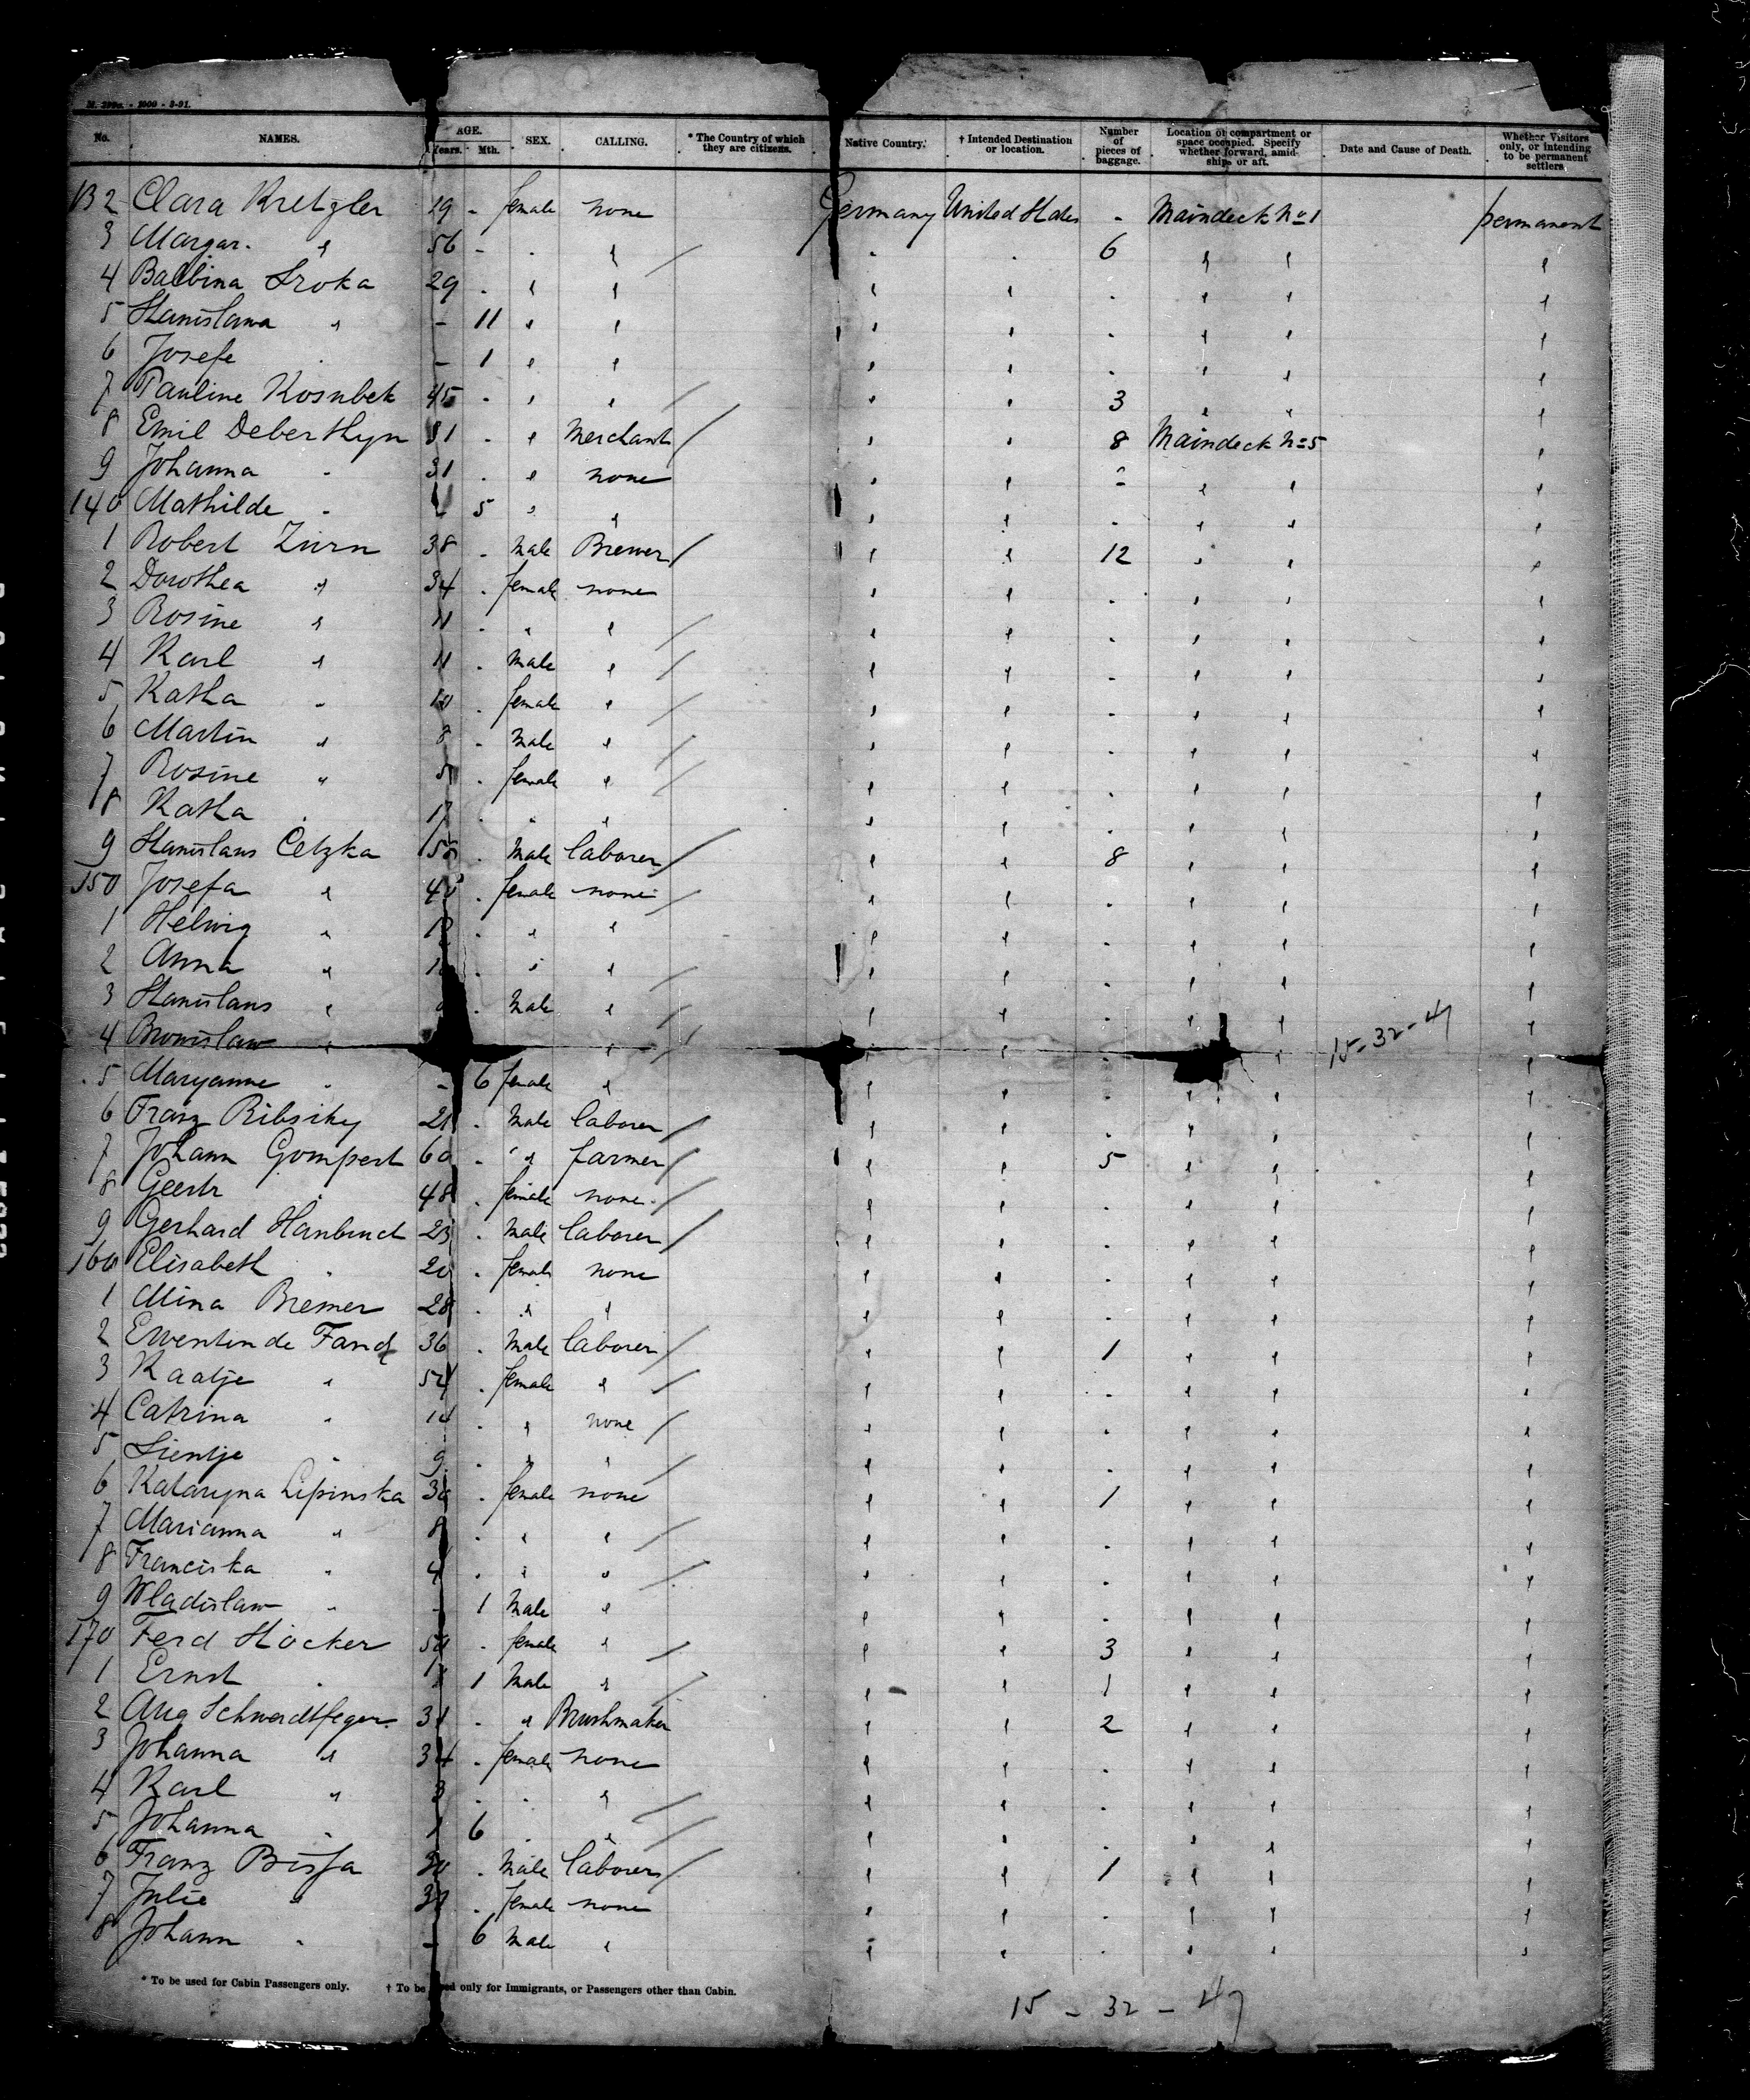 M. 299a. - 1000 - 3-91.
No. NAMES. AGE. Years. Mth. SEX. CALLING. * The Country of which they are citizens. Native Country. † Intended Destination or location. Number of pieces of baggage. Location of compartment or space occupied. Specify whether forward, amidships or aft. Date and Cause of Death. Whether Visitors only, or intending to be permanent settlers
132 Clara Kretzler 19 - female none Germany United States - Maindeck No 1 permanent
3 Margar. " 56 - . " . . 6 " " "
4 Balbina Sroka 29 . " " " " . " " "
5 Stanislawa " - 11 " " " " . " " "
6 Josefe . - 1 " " " " . " " "
7 Pauline Kosubek 45 . " " " " 3 " " "
8 Emil Deberthyn 31 . " Merchant " " 8 Maindeck No 5 "
9 Johanna " 31 . " none " " - " " "
140 Mathilde " - 5 " " " " . " " "
1 Robert Zurn 38 . Male Brewer " " 12 " " "
2 Dorothea " 34 . female none " " . " " "
3 Rosine " 11 . " " " " . " " "
4 Karl " 11 . Male " " " . " " "
5 Katha " 10 . female " " " . " " "
6 Martin " 8 . Male " " " . " " "
7 Rosine " 5 . female " " " . " " "
8 Katha . . " " " " . " " "
9 Stanislaus Cetzka . Male laborer " " 8 " " "
150 Josefa " . female none " " . " " "
1 Helwig " . " " " " . " " "
2 Anna " . " " " " . " " "
3 Stanislaus " . Male " " " . " " "
4 Bronislaw " " " " . " " 15-32-47 "
5 Maryanne . - 6 female " " " . " " "
6 Franz Ribsiky 21 . Male laborer " " . " " "
7 Johann Gompert 60 . " farmer " " 5 " " "
8 Geertr . 48 . female none " " . " " "
9 Gerhard 23 . Male laborer " " . " " "
160 Elisabeth . 20 . female none " " . " " "
1 Mina Bremer 28 . " " " " . " " "
2 36 . Male laborer " " 1 " " "
3 Kaatje " 54 . female " " " . " " "
4 Catrina " 14 . " none " " . " " "
5 Lientje " 9 . " " " " . " " "
6 Kataryna Lipinska . female none " " 1 " " "
7 Marianna " 8 . " " " " . " " "
8 Franciska " 4 . " " " " . " " "
9 Wladislaw " - 1 Male " " " . " " "
170 Ferd Höcker . female " " " 3 " " "
1 Ernst . 1 Male " " " 1 " " "
2 Aug Schwerdtfeger . " Brushmaker " " 2 " " "
3 Johanna " 34 . female none " " . " " "
4 Karl " 3 . . " " " . " " "
5 Johanna " 6 . " " " . " " "
6 Franz Bissa . Male laborer " " 1 " " "
7 Julie " . female none " " . " " "
8 Johann " - 6 Male " " " . " " "
* To be used for Cabin Passengers only. † To be used only for Immigrants, or Passengers other than Cabin.
15 - 32 - 47